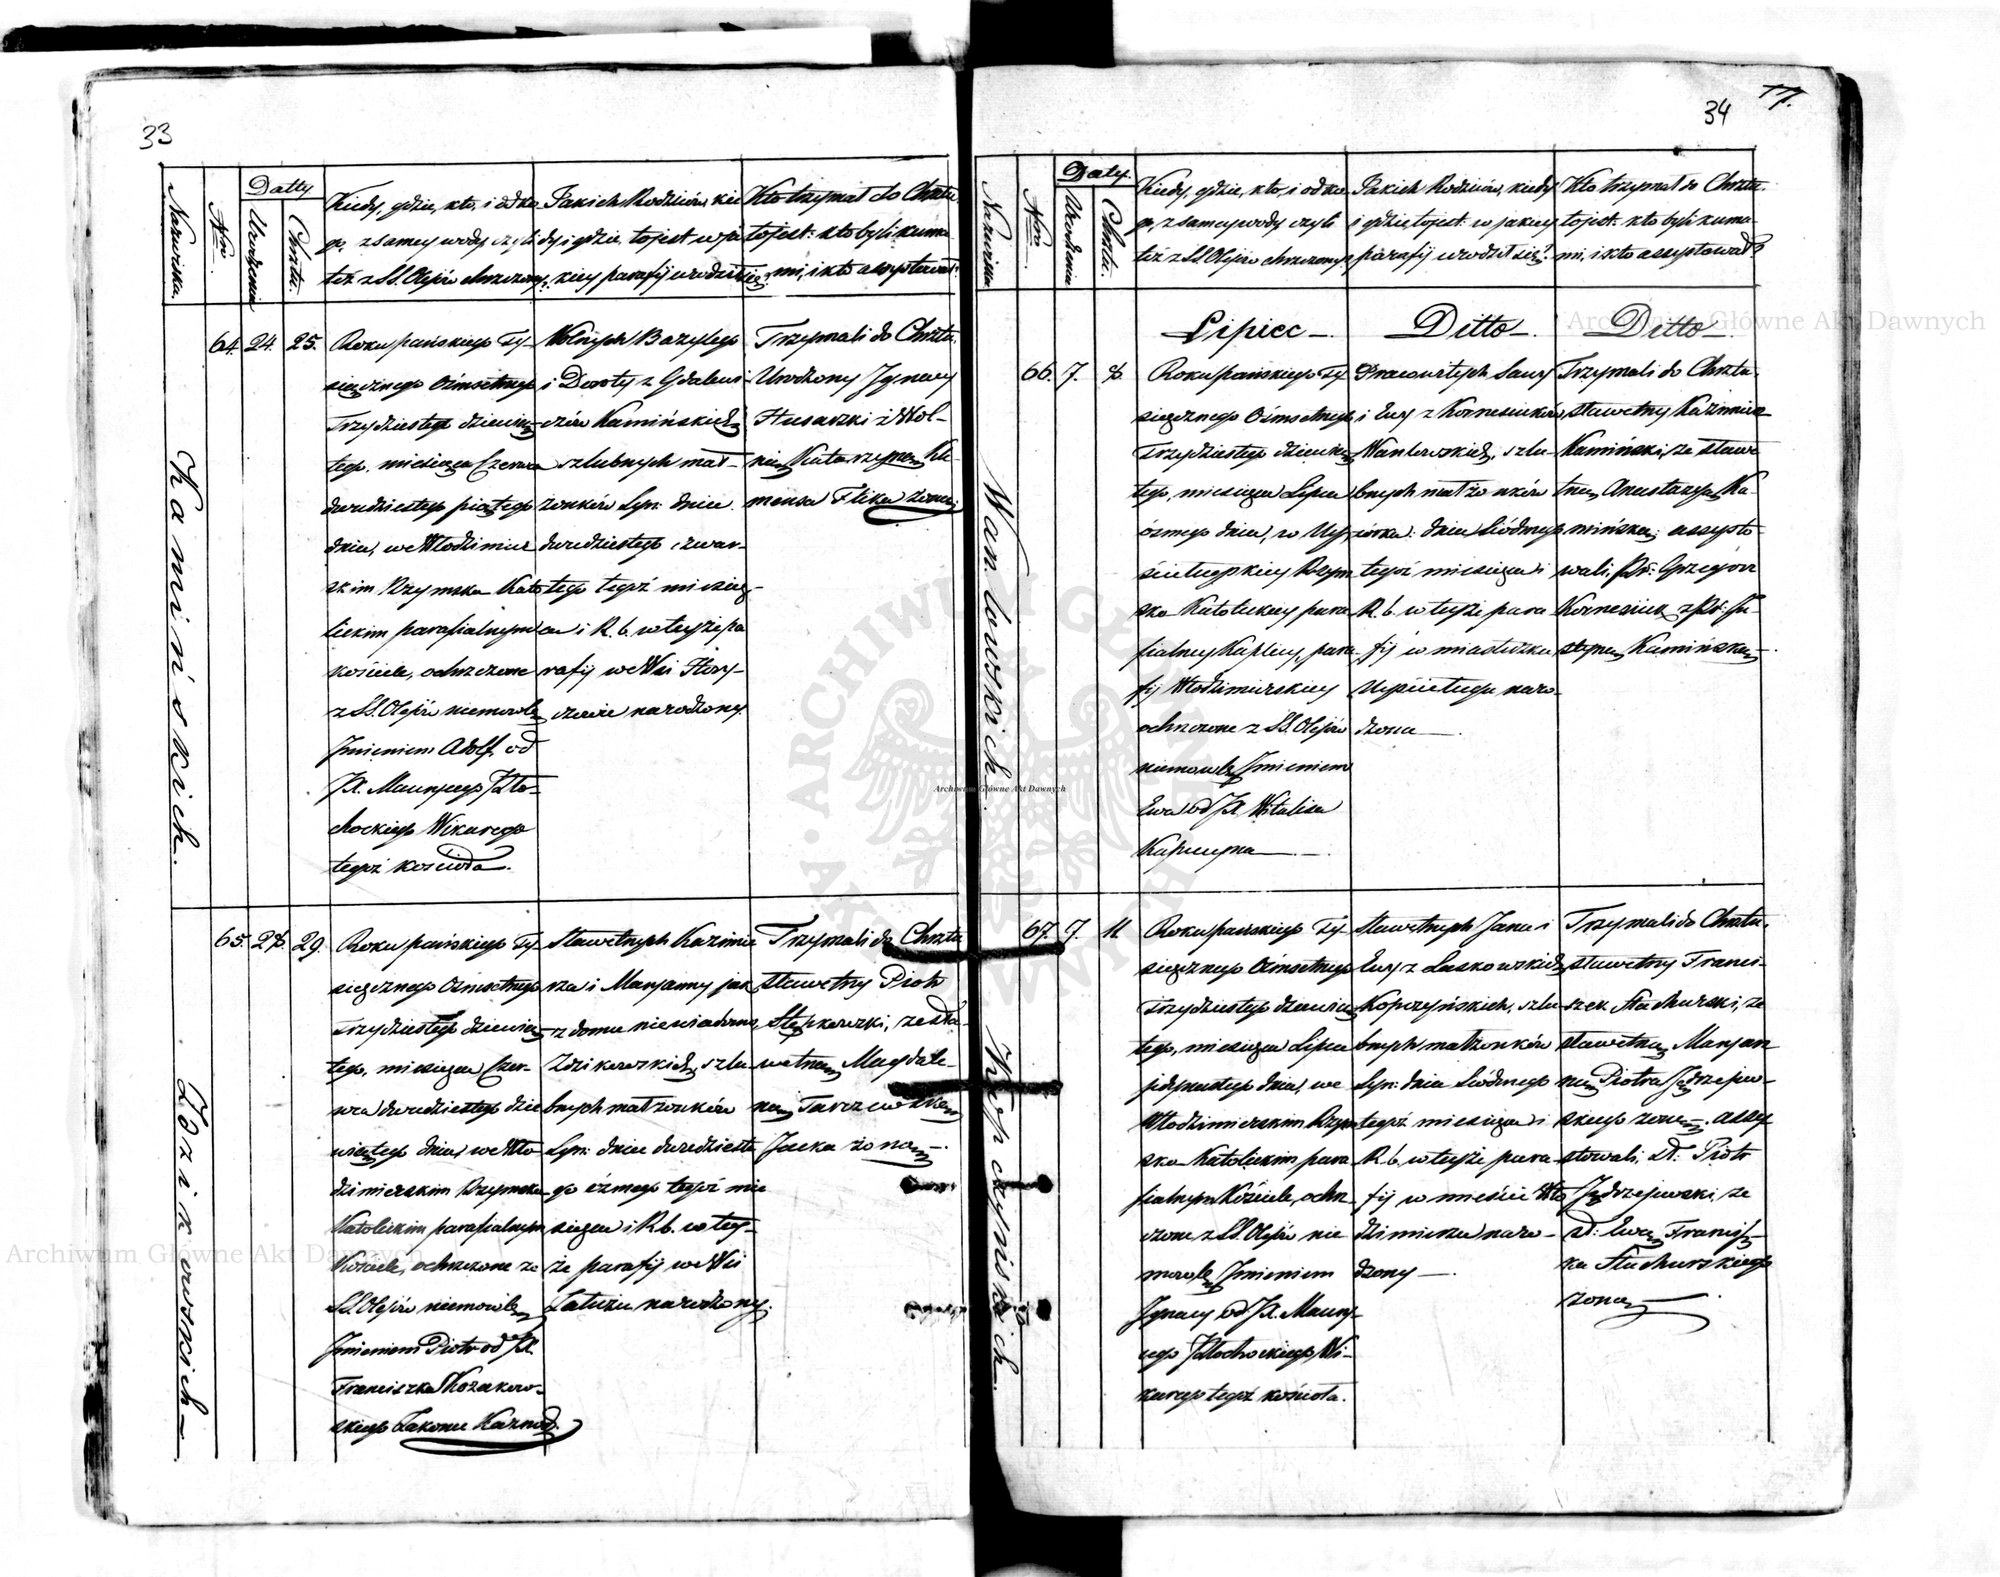 33
Nazwiska.
Nro
Datty
Urodzenia
Chrztu.
Kiedy, gdzie, kto, i od ko
go, z samey wody czyli
téż z SS. Olejów chrzczony?
Jakich Rodziców, kie
dy i gdzie, to jest w ja
kiey parafij urodził się?
Kto trzymał do Chrztu
to jest: kto byli kuma
mi, i kto assystował?
Kamińskich.
64. 24. 25.
Roku pańskiego Ty-
siącznego Ośmsetnego
Trzydziestego dziewią
tego, miesiąca Czerwca
dwudziestego piątego
dnia, we Włodzimier
skim Rzymsko Kato
lickim parafialnym
kościele, ochrzczone
z SS. Olejów niemowlę
Jmieniem Adolf od
JX. Maurycego Kło-
chockiego Wikarego
tegoż kościoła.
Wolnych Bazylego
i Doroty z Gdalewi
czów Kamińskich
szlubnych mał-
żonków Syn: dnia
dwudziestego czwar-
tego tegoż miesią-
ca i R. b. w teyże pa
rafij we Wsi Hory-
czowie narodzony.
Trzymali do Chrztu.
Urodzony Jgnacy
Husarzki z Wol-
ną Katarzyną Kle
mensa Flika żoną
Zdzikowskich
65. 28. 29.
Roku pańskiego Ty-
siącznego Ośmsetnego
Trzydziestego dziewią
tego, miesiąca Czer-
wca dwudziestego dzie
wiątego dnia, we Wło
dzimierskim Rzymsko
Katolickim parafialnym
Kościele, ochrzczone ze
SS. Olejów niemowlę
Jmieniem Piotr od JX.
Franciszka Kozakow-
skiego Zakonu Kaznod.
Sławetnych Kazimie
rza i Maryanny jak
z domu niewiadomo,
Zdzikowskich, szlu
bnych małżonków
Syn: dnia dwudzieste
go ósmego tegoż mie
siąca i R. b. w tey-
że parafij we Wsi
Fałużu narodzony.
Trzymali do Chrztu
sławetny Piotr
Stępkowski, ze sła-
wetną Magdale-
ną Tarczewską
Jacka żoną.
34
17.
Nazwiska
Nro
Daty.
Urodzenia
Chrztu.
Kiedy, gdzie, kto, i od ko
go, z samey wody czyli
téż z SS. Olejów chrzczony?
Jakich Rodziców, kiedy
i gdzie, to jest w jakiey
parafij urodził się?
Kto trzymał do Chrztu
to jest: kto byli kuma
mi, i kto assystował?
Lipiec Ditto Ditto
Wantowskich
66. 7. 8
Roku pańskiego Ty
siącznego Ośmsetnego
Trzydziestego dziewią
tego, miesiąca Lipca
ósmego dnia, w Uś
ciługskiey Rzym
sko Katolickiey para
fialney Kaplicy, para
fij Włodzimirskiey
ochrzczone z SS. Olejów
niemowlę Jmieniem
Ewa od JX Witalisa
Kapucyna
Pracowitych Sawy
i Ewy z Korneluków
Wantowskich, szlu-
bnych małżonków
córka: dnia siódmego
tegoż miesiąca i
R. b. w teyże para
fij w miasteczku
Uściługu naro-
dzona
Trzymali do Chrztu.
sławetny Kazimierz
Kamiński, ze sławe
tną Anastazyą Ka-
mińską: assysto
wali, Pr: Grzegórz
Korneluk z Pr: Ju-
styną Kamińską.
Kopczyńskich.
67. 7. 11
Roku pańskiego Ty-
siącznego Ośmsetnego
Trzydziestego dziewią
tego, miesiąca Lipca
jedynastego dnia, we
Włodzimierskim Rzym
sko Katolickim para
fialnym Kościele, ochrz
czone z SS. Olejów nie
mowlę Jmieniem
Jgnacy od JX. Maury-
cego Kłochockiego Wi-
karego tegoż kościoła.
Sławetnych Jana i
Ewy z Laskowskich
Kopczyńskich, szlu
bnych małżonków
Syn: dnia siódmego
tegoż miesiąca i
R. b. w teyże para-
fij w mieście Wło
dzimierzu naro-
dzony
Trzymali do Chrztu.
sławetny Franci-
szek Stachurski, ze
sławetną Maryan
ną Piotra Jędrzejow-
skiego żoną. assy
stowali, S: Piotr
Jędrzejowski, ze
S: Ewą Francisz-
ka Stachurskiego
żoną
Archiwum Główne Akt Dawnych
Archiwum Główne Akt Dawnych
Archiwum Główne Akt Dawnych